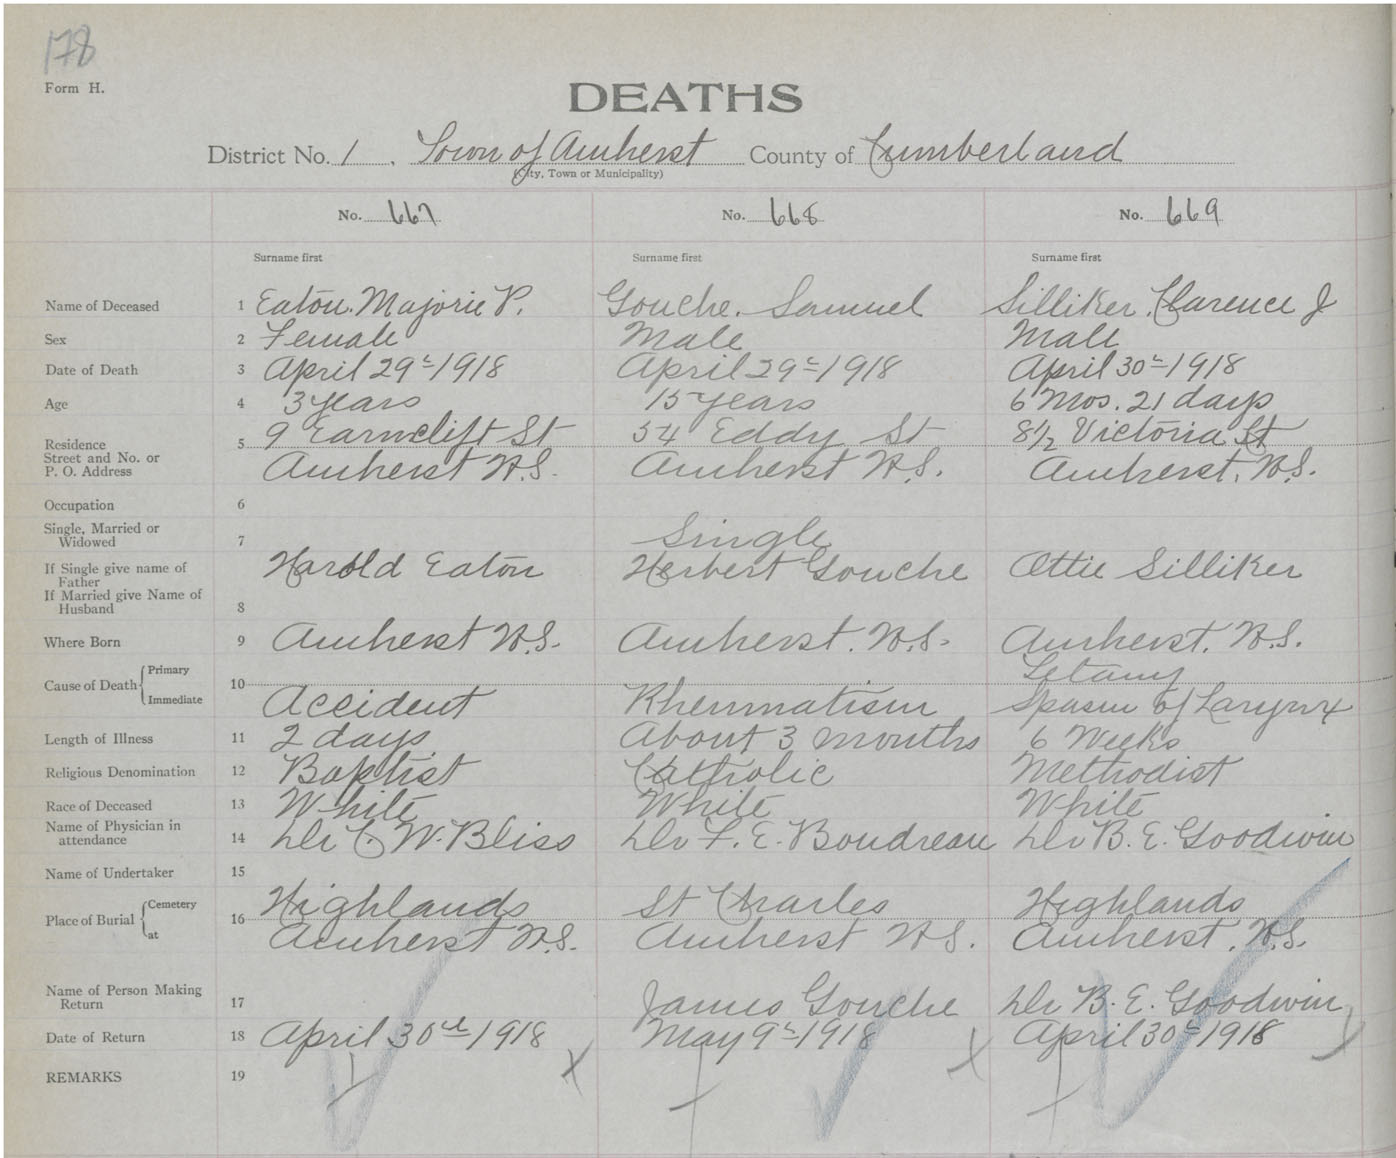 178
Form H.
DEATHS
District No. 1, Town of Amherst County of Cumberland
(City, Town or Municipality)
No. 667 No. 668 No. 669
Surname first Surname first Surname first
Name of Deceased 1 Eaton. Majorie P. Gouche. Samuel Silliker. Clarence J
Sex 2 Female Male Male
Date of Death 3 April 29th 1918 April 29th 1918 April 30th 1918
Age 4 3 years 15 years 6 Mos. 21 days
Residence 5 9 Earncliff St 54 Eddy St 8½ Victoria St
Street and No. or
P. O. Address Amherst N.S. Amherst N.S. Amherst. N.S.
Occupation 6
Single, Married or
Widowed 7 Single
If Single give name of
Father Harold Eaton Herbert Gouche Ottie Silliker
If Married give Name of
Husband 8
Where Born 9 Amherst N.S. Amherst. N.S. Amherst. N.S.
Cause of Death Primary 10 Tetany
Immediate Accident Rheumatism Spasm of Larynx
Length of Illness 11 2 days About 3 months 6 Weeks
Religious Denomination 12 Baptist Catholic Methodist
Race of Deceased 13 White White White
Name of Physician in
attendance 14 Dr C. W. Bliss Dr F. E. Boudreau Dr B. E. Goodwin
Name of Undertaker 15
Place of Burial Cemetery 16 Highlands St Charles Highlands
at Amherst N.S. Amherst N.S. Amherst. N.S.
Name of Person Making
Return 17 James Gouche Dr B. E. Goodwin
Date of Return 18 April 30th 1918 May 9th 1918 April 30th 1918
REMARKS 19